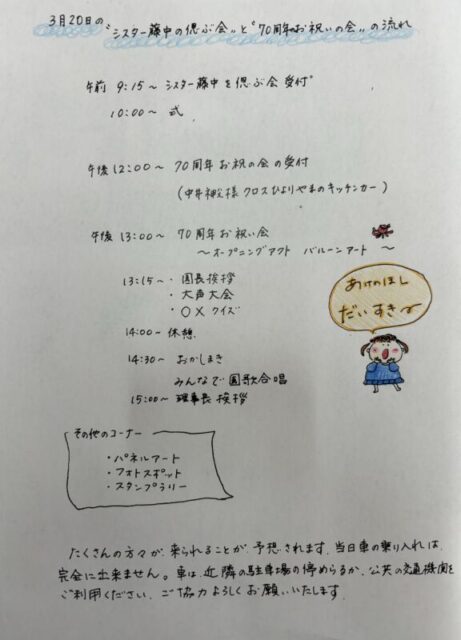 3月20日の"シスター藤中の偲ぶ会"と"70周年お祝いの会"の流れ
午前 9:15〜 シスター藤中を偲ぶ会 受付
10:00〜 式
午後 12:00〜 70周年お祝の会の受付
(中井神父様 クロスひよりやまのキッチンカー)
午後 13:00〜 70周年お祝い会
〜オープニングアクト バルーンアート 〜
13:15〜・園長挨拶
・大声大会
・○×クイズ
14:00〜 休憩
14:30〜 おかしまき
みんなで園歌合唱
15:00〜 理事長挨拶
あけのほし
だいすき〜
その他のコーナー
・パネルアート
・フォトスポット
・スタンプラリー
たくさんの方々が、来られることが予想されます。当日車の乗り入れは、
完全に出来ません。車は、近隣の駐車場の停めらるか、公共の交通機関を
ご利用ください。ご協力よろしくお願いいたします。